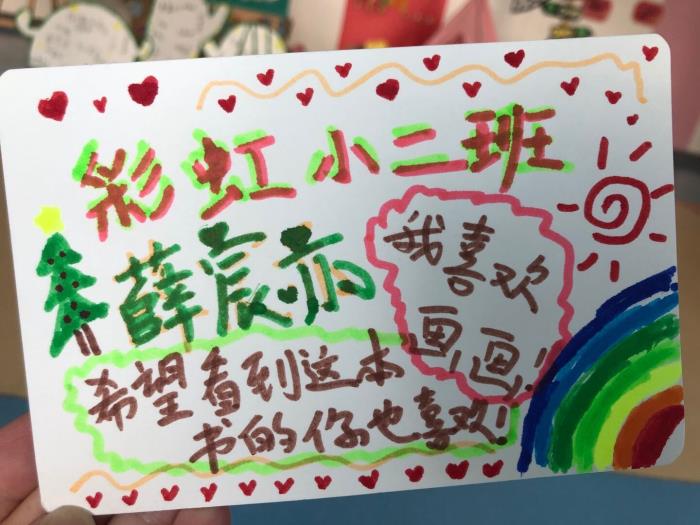 彩虹小二班
薛宸亦
我喜欢
画画!
希望看到这本
书的你也喜欢!